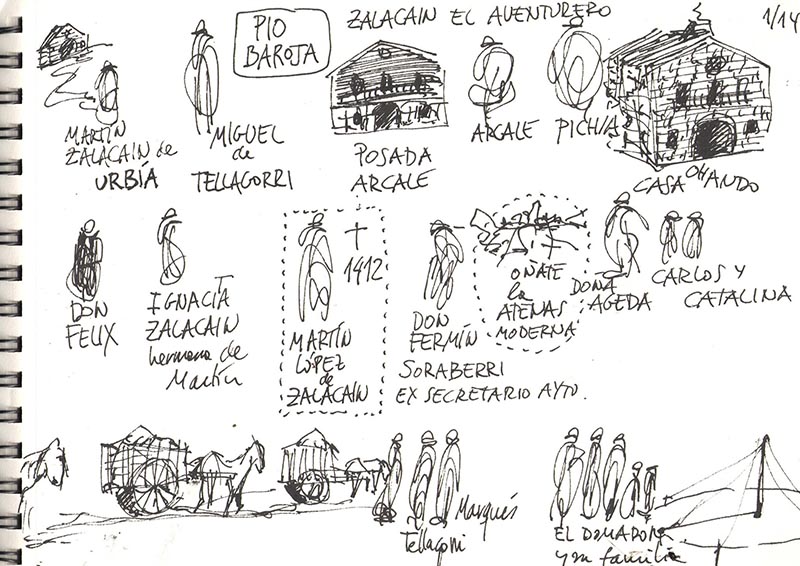 PIO
BAROJA
ZALACAIN EL AVENTURERO
1/14
MARTÍN
ZALACAIN de
URBÍA
MIGUEL
de
TELLAGORRI
POSADA
ARCALE
ARCALE
PICHÍA
CASA OHANDO
DON
FELIX
IGNACIA
ZALACAIN
hermana de
Martín
† 1412
MARTÍN
LÓPEZ
de
ZALACAIN
DON
FERMÍN
SORABERRI
EX SECRETARIO AYTO.
OÑATE
la
ATENAS
MODERNA
DOÑA
AGEDA
CARLOS Y
CATALINA
Marqués
Tellagorri
EL DOMADOR
y su familia